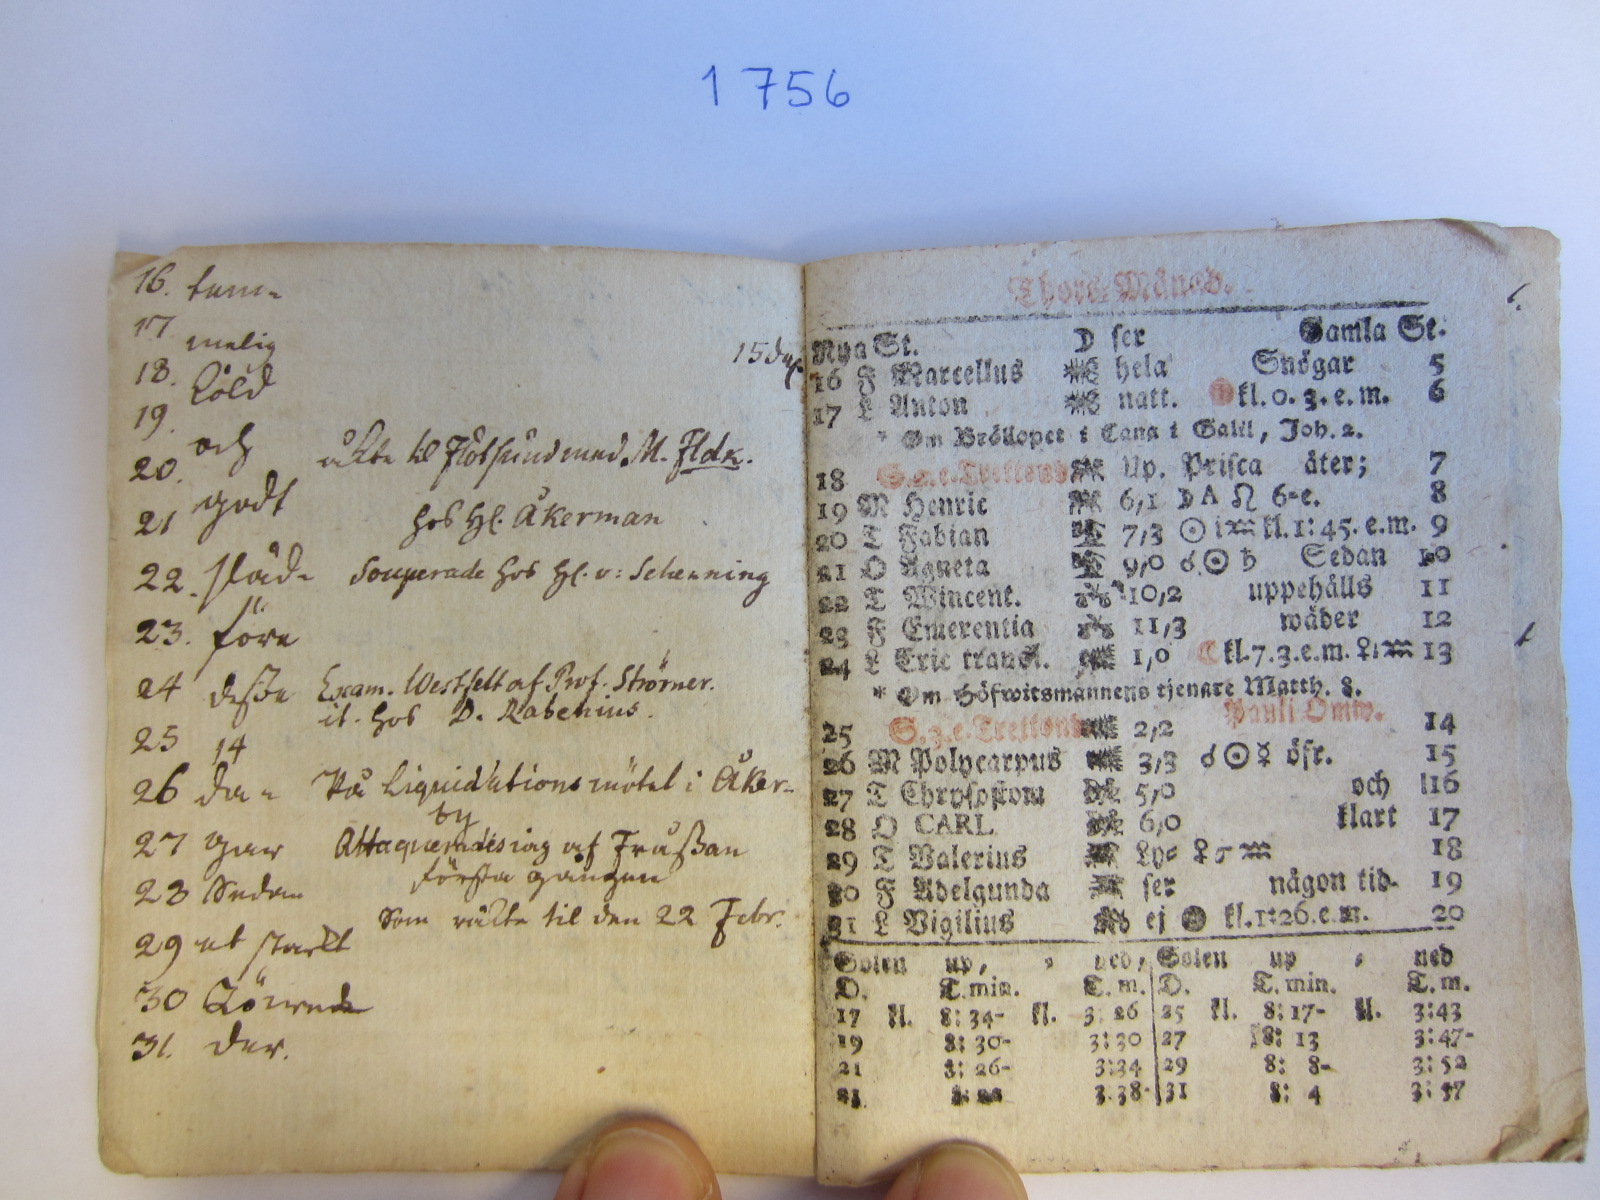 1756
16. tem-
17 melig
15 da
18. köld
19.
och
20. åkte til Flötsund med M. Fldk.
godt
21 hos Hl. Åkerman
22. släd- Souperade hos Hl. v: Schenning
23. före
24 desse Exam. Westfelt af Prof. Strömer.
it. hos D. Rabenius.
25 14
26 da- På Liquidations mötet i Åker-
by
27 gar Attaquerades iag af Frussan
första gången
28 Sedan
som räkte til den 22 Febr.
29 et starkt
30 Tönede
31. der.
Thors-Månad.
Nya St. D ser Gamla St.
16 F Marcellus hela Snögar 5
17 L Anton natt. kl. 0. 3. e. m. 6
* Om Bröllopet i Cana i Galil, Joh. 2.
18 S. 2. e. Trettond Up. Prisca åter; 7
19 M Henric 6,1 D A ♌ 6-e. 8
20 T Fabian 7,3 ☉ i ♒ kl. 1: 45. e. m. 9
21 O Agneta 9,0 ☌ ☉ ♄ Sedan 10
22 T Wincent. 10,2 uppehålls 11
23 F Emerentia 11,3 wäder 12
24 L Eric transl. 1,0 ☾ kl. 7. 3. e. m. ♀ i ♒ 13
* Om Höfwitsmannens tjenare Matth. 8.
25 S. 3. e. Trettond 2,2 Pauli Omw. 14
26 M Polycarpus 3,3 ☌ ☉ ☿ öfr. 15
27 T Chrysostom 5,0 och 16
28 O CARL 6,0 klart 17
29 T Valerius Ly- ♀ ♂ ♒ 18
30 F Adelgunda ser någon tid- 19
31 L Vigilius ej kl. 1: 26. e. m. 20
Solen up, , ned, Solen up , ned
D. T. min. T. m. D. T. min. T. m.
17 kl. 8: 34- kl. 3: 26 25 kl. 8: 17- kl. 3: 43
19 8: 30- 3: 30 27 8: 13 3: 47-
21 8: 26- 3: 34 29 8: 8- 3: 52
23 8: 22 3. 38- 31 8: 4 3: 57